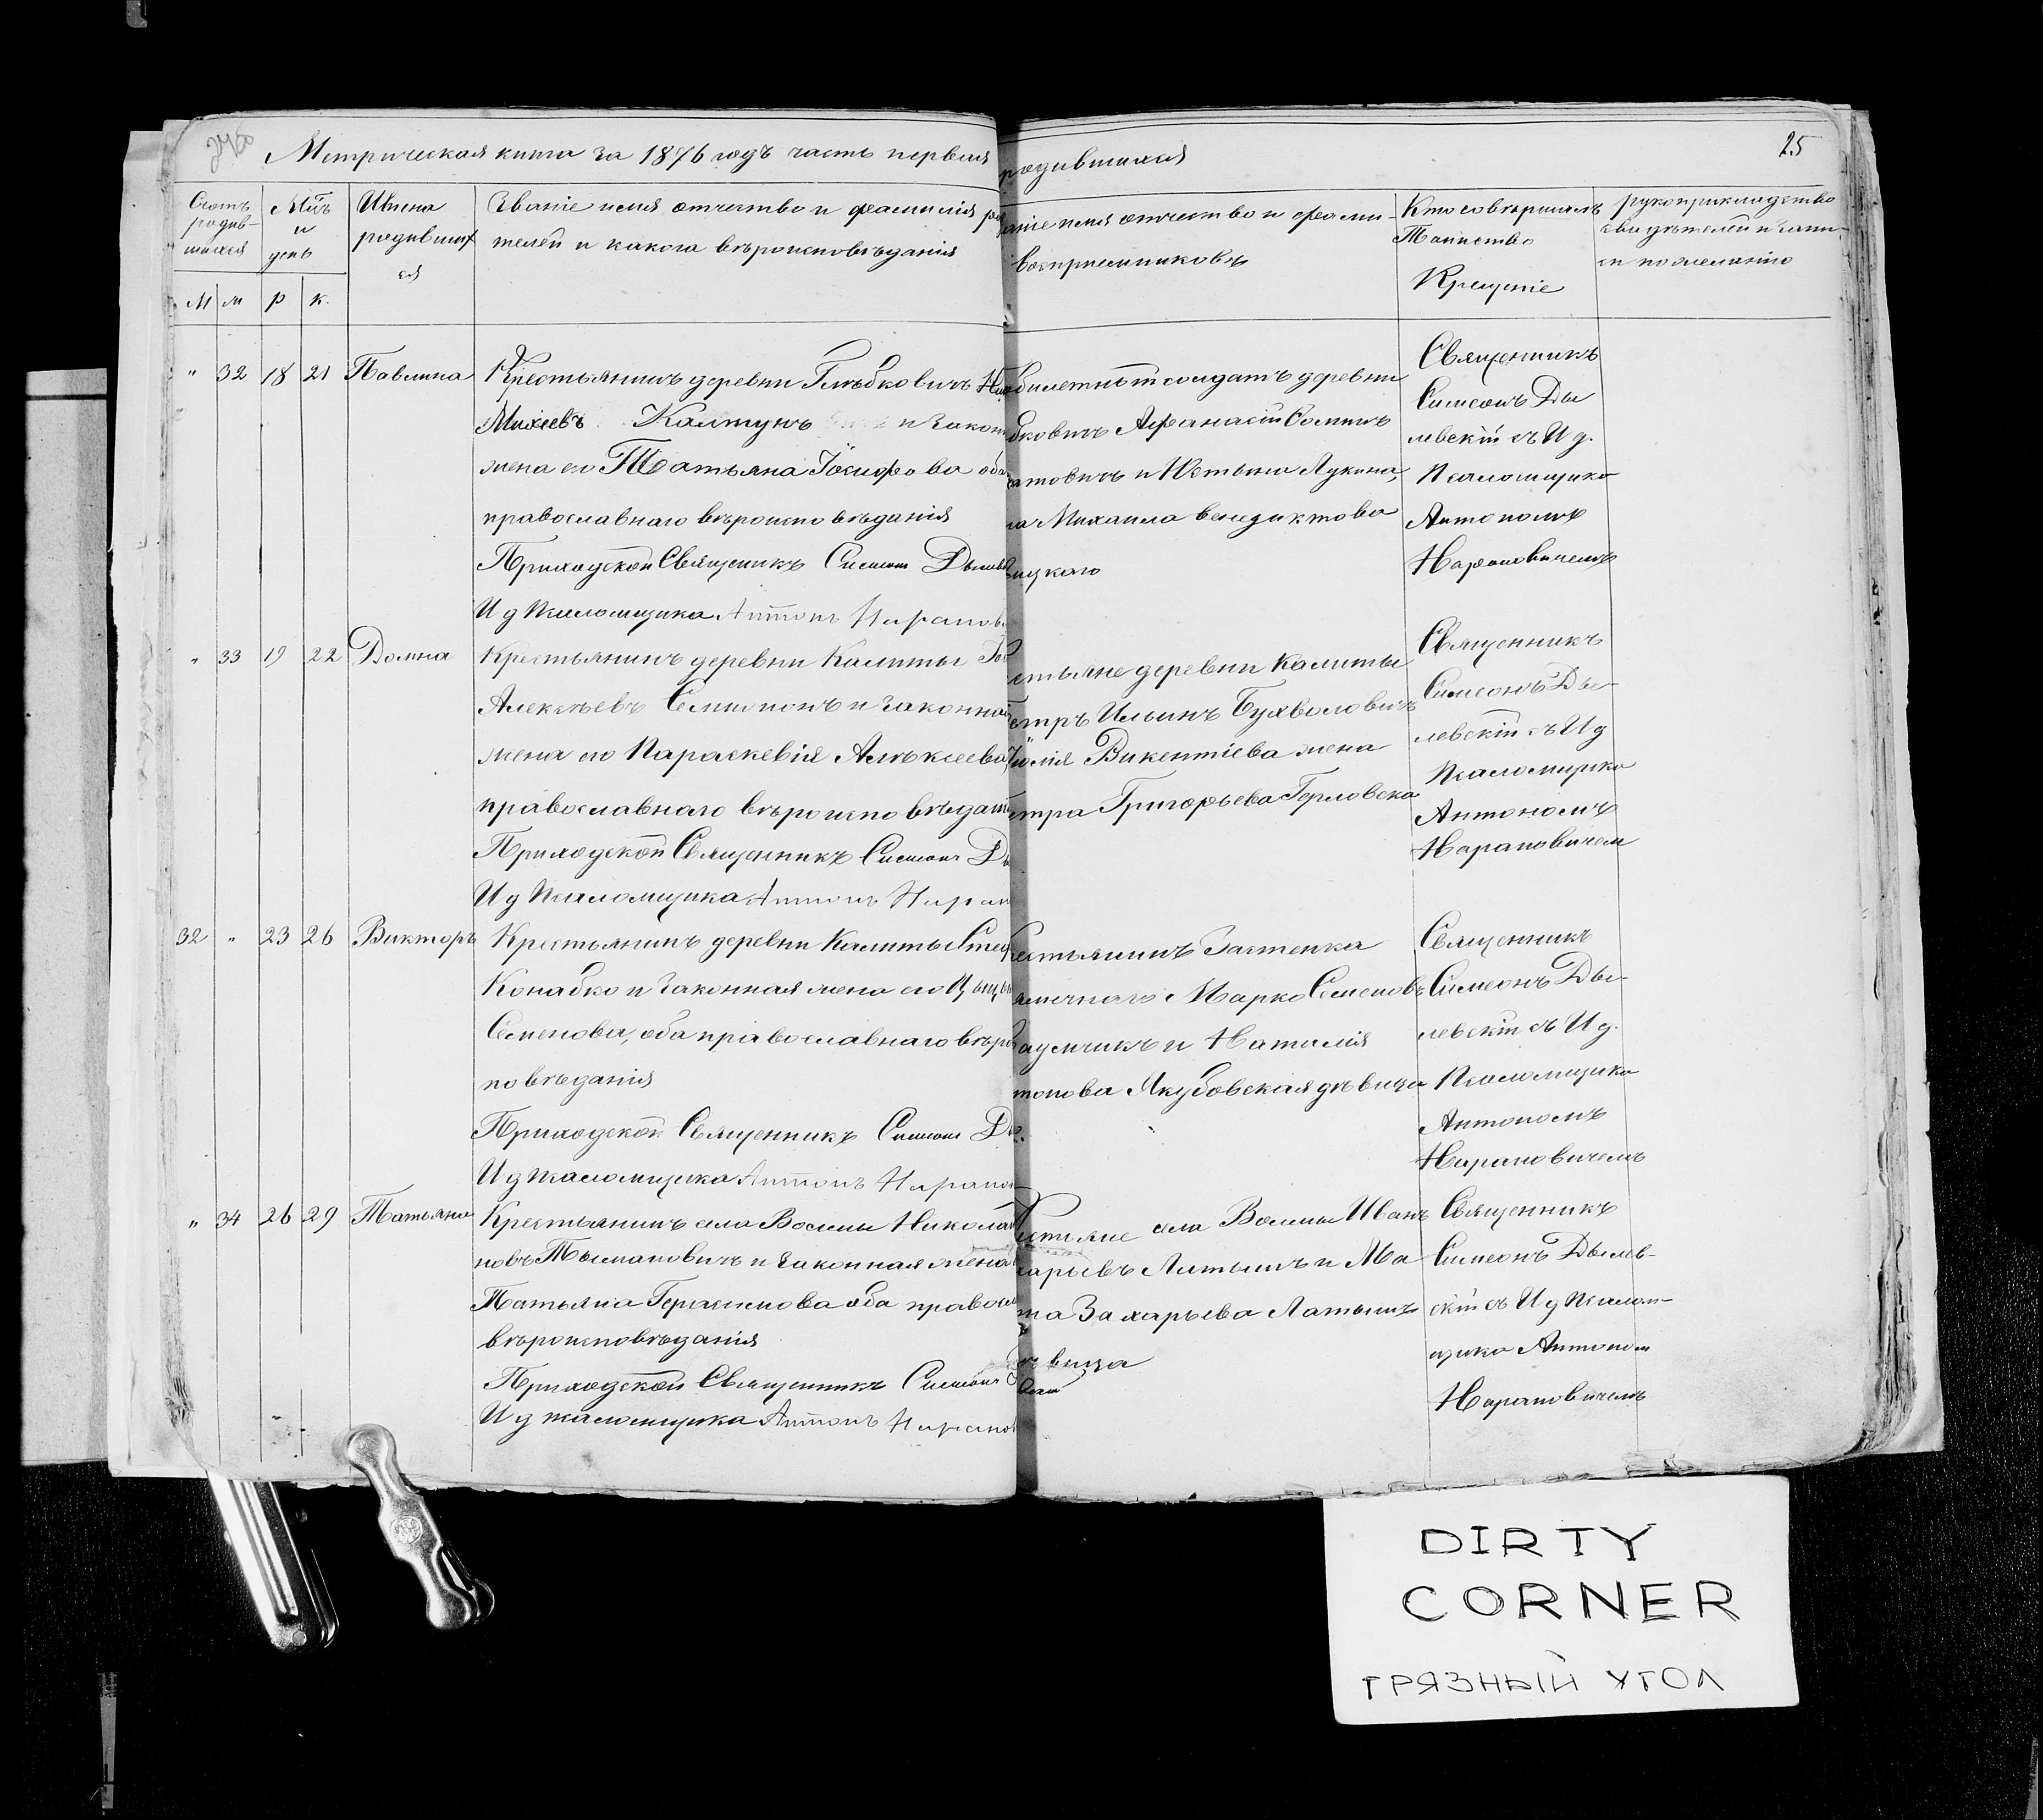 Метрическая книга за 1876 годъ часть первая
родившихся
25
Счетъ родив-
шихся
Мцъ и день
Имена родивших
ся
Званіе имя отчество и фамилія ро
телей и какого вѣроисповѣданія
аніе имя отчество и фами-
воспріемниковъ
Кто совершалъ
Таинство
Крещенія
рукоприкладство
свидѣтелей и запи-
си по желанію
М м р к.
" 32 18 21 Павлина
Крестьянинъ деревни Глыбковичъ
Михеевъ Калтунъ и закон
жена его Татьяна Іосифова оба
православнаго вѣроисповѣданія
Приходской Священникъ Симеонъ Дылев
И д Псаломщика Антонъ Наранов
билетной солдатъ деревни
бковичъ Афанасій Фоминъ
атовичъ и Устинья Лукина,
на Михаила Венедиктова
цкаго
Священникъ
Симеонъ Ды
левскій съ И д.
Псаломщика
Антономъ
Нарановичемъ
" 33 19 22 Домна
Крестьянинъ деревни Калиты
Алексѣевъ Семпонъ и законная
жена его Параскевія Алексеева
православнаго вѣроисповѣдані
Приходской Священникъ Симеонъ Ды
И д Псаломщика Антонъ Наран
стьяне деревни Калиты
етръ Ильинъ Бухволовичъ
Викентіева жена
етра Григорьева Герловска
Священникъ
Симеонъ Ды-
левскій съ И д
Псаломщика
Антономъ
Нарановичем
32 " 23 26 Викторъ
Крестьянинъ деревни Калиты Стеф
Конабко и законная жена его
Семенова, оба православнаго вѣрои
повѣданія
Приходской Священникъ Симеонъ Ды.
И д Псаломщика Антонъ Наранов
естьянинъ Застенка
Марко Семеновъ
аумчикъ и Наталія
тонова Якубовская дѣвица
Священникъ
Симеонъ Ды-
левскій съ И д.
Псаломщика
Антономъ
Нарановичемъ
" 34 26 29 Татьяна
Крестьянинъ села Волмы Никола
новъ Тыманович и законная жена
Татьяна Герасимова оба правосл
вѣроисповѣданія
Приходской Священникъ Симеонъ
И д псаломщика Антонъ Наранов
стьяне села Волмы Иванъ
харьевъ Латышъ и Ма
та Захарьева Латышъ
вица
Священникъ
Симеонъ Дылев-
скій съ И д Псалом-
щика Антоном
Нарановичемъ
DIRTY
CORNER
ГРЯЗНЫЙ УГОЛ